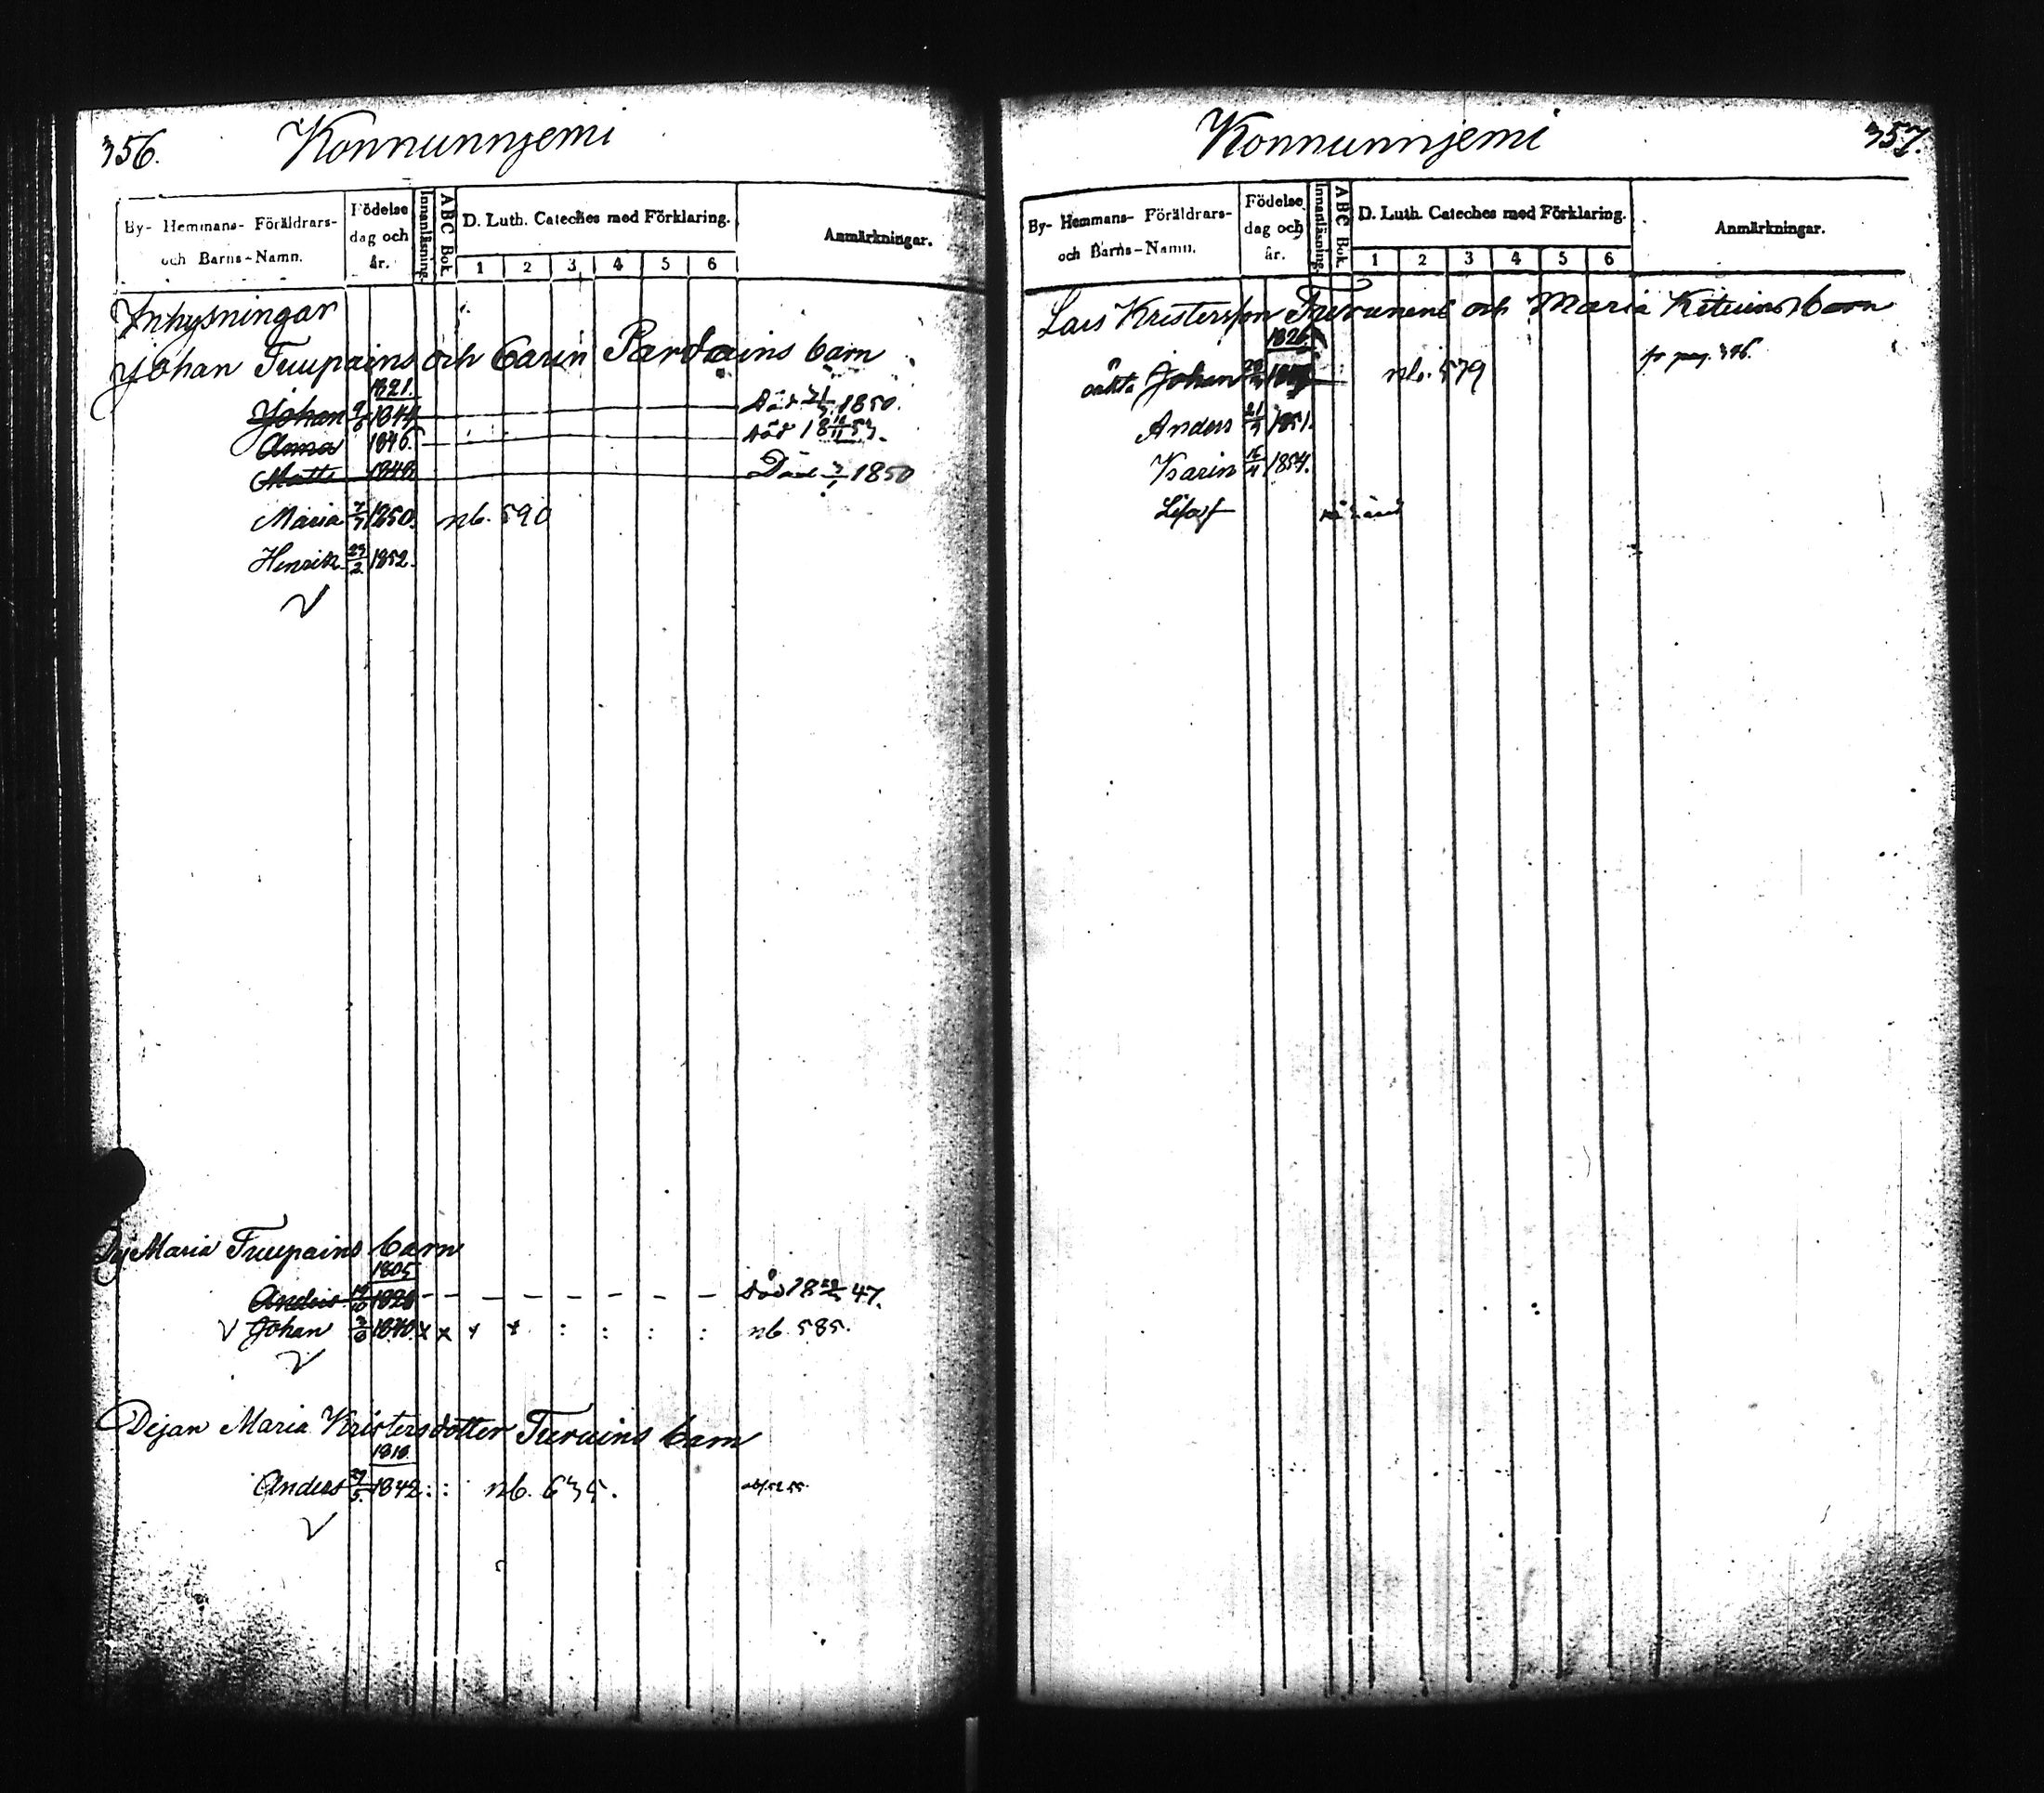 356. Konnunnjemi
By- Hemmans- Föräldrars- och Barns-Namn.
Födelse dag och år.
Innanläsning.
ABC Bok.
D. Luth. Cateches med Förklaring.
1 2 3 4 5 6
Anmärkningar.
Inhysningar
Johan Tuupains och Carin Pardains barn
1821.
Johan 1844 Död 1850.
Anna 1846. död 18 53.
Matts 1848 Död 1850
Maria 1850. nb. 590
Henrik 23/2 1852.
Maria Tuupains barn
1805
Anders 1828 död 18 47.
Johan 1840. x x x x : : : : nb. 585.
Dejan Maria Kristersdotter Turains barn
1818.
Anders 1842 : : nb. 635.
Konnunnjemi 357.
By- Hemmans- Föräldrars- och Barns-Namn.
Födelse dag och år.
Innanläsning.
ABC Bok.
D. Luth. Cateches med Förklaring.
1 2 3 4 5 6
Anmärkningar.
Lars Kristersson och Maria barn
1826
Johan nb. 579
Anders 1851.
Karin 1854.